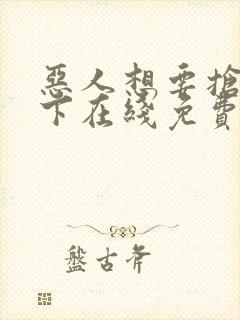 惡人想要搶
下在綫免費
盤古斧